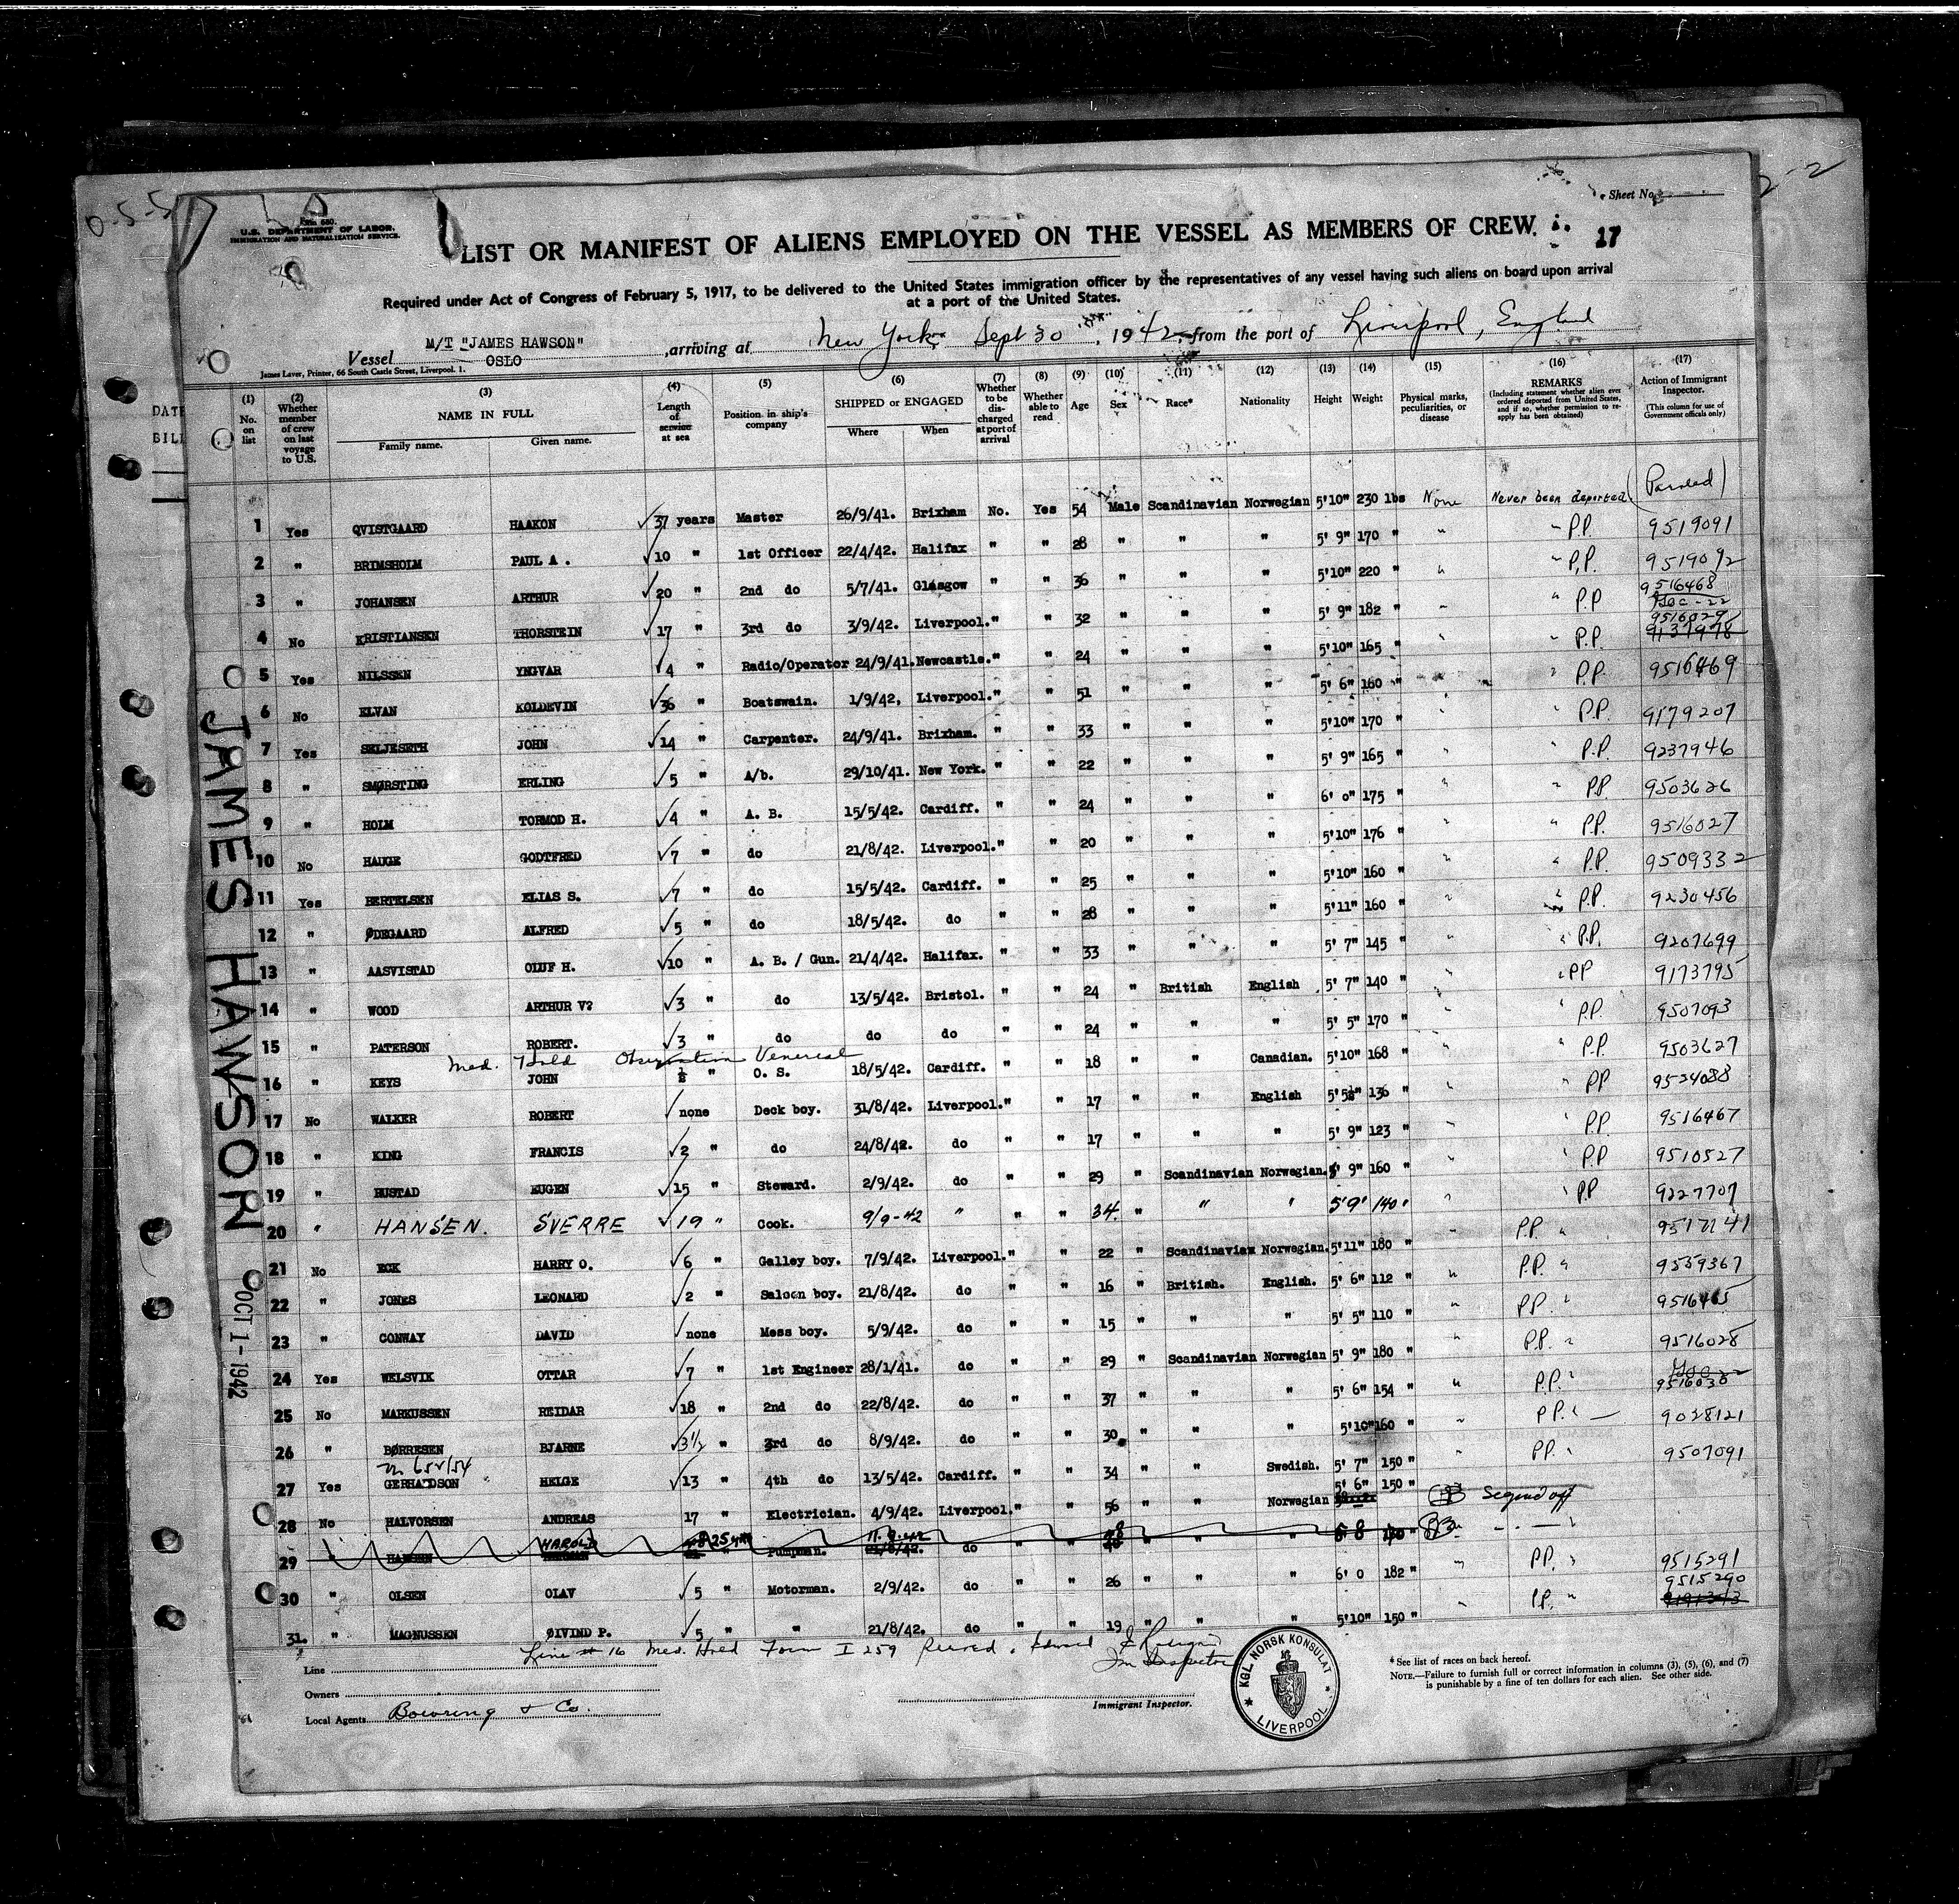 Sheet No.
Form 680.
U.S. DEPARTMENT OF LABOR.
IMMIGRATION AND NATURALIZATION SERVICE.
LIST OR MANIFEST OF ALIENS EMPLOYED ON THE VESSEL AS MEMBERS OF CREW. 17
Required under Act of Congress of February 5, 1917, to be delivered to the United States immigration officer by the representatives of any vessel having such aliens on board upon arrival
at a port of the United States.
Vessel M/T "JAMES HAWSON" OSLO, arriving at New York, Sept 30, 1942, from the port of Liverpool, England
James Laver, Printer, 66 South Castle Street, Liverpool. 1.
(1) No. on list
(2) Whether member of crew on last voyage to U.S.
(3) NAME IN FULL Family name. Given name.
(4) Length of service at sea
(5) Position in ship's company
(6) SHIPPED or ENGAGED Where When
(7) Whether to be discharged at port of arrival
(8) Whether able to read
(9) Age
(10) Sex
(11) Race*
(12) Nationality
(13) Height
(14) Weight
(15) Physical marks, peculiarities, or disease
(16) REMARKS (Including statement whether alien ever ordered deported from United States, and if so, whether permission to re-apply has been obtained)
(17) Action of Immigrant Inspector. (This column for use of Government officials only)
1 Yes QVISTGAARD HAAKON 37 years Master 26/9/41. Brixham No. Yes 54 Male Scandinavian Norwegian 5'10" 230 lbs None Never been deported (Paroled)
2 " BRIMSHOLM PAUL A. 10 " 1st Officer 22/4/42. Halifax " " 28 " " " 5' 9" 170 " " " P.P. 9519091
3 " JOHANSEN ARTHUR 20 " 2nd do 5/7/41. Glasgow " " 36 " " " 5'10" 220 " " " P.P. 9519092
4 No KRISTIANSEN THORSTEIN 17 " 3rd do 3/9/42. Liverpool. " " 32 " " " 5' 9" 182 " " " P.P 9516468
5 Yes NILSSEN YNGVAR 4 " Radio/Operator 24/9/41. Newcastle. " " 24 " " " 5'10" 165 " " " P.P. 9516029 9137978
6 No ELVAN KOLDEVIN 36 " Boatswain. 1/9/42, Liverpool. " " 51 " " " 5' 6" 160 " " " P.P. 9516469
7 Yes SELJESETH JOHN 14 " Carpenter. 24/9/41. Brixham. " " 33 " " " 5'10" 170 " " " P.P. 9179207
8 " SMØRSTING ERLING 5 " A/b. 29/10/41. New York. " " 22 " " " 5' 9" 165 " " " P.P. 9237946
9 " HOLM TORMOD H. 4 " A. B. 15/5/42. Cardiff. " " 24 " " " 6' 0" 175 " " " PP 9503626
10 No HAUGE GODTFRED 7 " do 21/8/42. Liverpool. " " 20 " " " 5'10" 176 " " " P.P. 9516027
11 Yes BERTELSEN ELIAS S. 7 " do 15/5/42. Cardiff. " " 25 " " " 5'10" 160 " " " P.P. 9509332
12 " ØDEGAARD ALFRED 5 " do 18/5/42. do " " 28 " " " 5'11" 160 " " " P.P. 9230456
13 " AASVISTAD OLUF H. 10 " A. B. / Gun. 21/4/42. Halifax. " " 33 " " " 5' 7" 145 " " " P.P. 9207699
14 " WOOD ARTHUR V? 3 " do 13/5/42. Bristol. " " 24 " British English 5' 7" 140 " " " PP 9173795
15 " PATERSON ROBERT. 3 " do do do " " 24 " " " 5' 5" 170 " " " P.P. 9507093
Med. Hold Observation Venereal
16 " KEYS JOHN ½ " O. S. 18/5/42. Cardiff. " " 18 " " Canadian. 5'10" 168 " " " P.P. 9503627
17 No WALKER ROBERT none Deck boy. 31/8/42. Liverpool. " " 17 " " English 5'5½" 136 " " " PP 9524088
18 " KING FRANCIS 2 " do 24/8/42. do " " 17 " " " 5' 9" 123 " " " P.P. 9516467
19 " RUSTAD EUGEN 15 " Steward. 2/9/42. do " " 29 " Scandinavian Norwegian. 5' 9" 160 " " " P.P 9510527
20 " HANSEN. SVERRE 19 " Cook. 9/9-42 " " " 34. " " " 5'9" 140 " " " P.P 9227707
21 No ECK HARRY O. 6 " Galley boy. 7/9/42. Liverpool. " " 22 " Scandinavian Norwegian. 5'11" 180 " P.P. "
22 " JONES LEONARD 2 " Saloon boy. 21/8/42. do " " 16 " British. English. 5' 6" 112 " " P.P. " 9559367
23 " CONWAY DAVID none Mess boy. 5/9/42. do " " 15 " " " 5' 5" 110 " " P.P. " 9516465
24 Yes WELSVIK OTTAR 7 " 1st Engineer 28/1/41. do " " 29 " Scandinavian Norwegian 5' 9" 180 " " P.P. " 9516028
25 No MARKUSSEN REIDAR 18 " 2nd do 22/8/42. do " " 37 " " " 5' 6" 154 " " P.P. " 9516030
26 " BØRRESEN BJARNE 3½ " 3rd do 8/9/42. do " " 30 " " " 5'10" 160 " " P.P. " 9028121
27 Yes GERHARDSON HELGE 13 " 4th do 13/5/42. Cardiff. " " 34 " " Swedish. 5' 7" 150 " " P.P. " 9507091
28 No HALVORSEN ANDREAS 17 " Electrician. 4/9/42. Liverpool. " " 56 " " Norwegian 5' 6" 150 " Signed off
29 " HANSEN HAROLD Pumpman. 11.9.42 21/8/42. do
30 " OLSEN OLAV 5 " Motorman. 2/9/42. do " " 26 " " " 6' 0 182 " " P.P. " 9515291
31. " MAGNUSSEN ØIVIND P. 5 " " 21/8/42. do " " 19 " " " 5'10" 150 " " P.P. " 9515290
Line # 16 Med. Hold Form I 259 Edward Im Inspector
Line
Owners
Local Agents Bowring & Co.
Immigrant Inspector.
KGL. NORSK KONSULAT
LIVERPOOL
* See list of races on back hereof.
NOTE.—Failure to furnish full or correct information in columns (3), (5), (6), and (7)
is punishable by a fine of ten dollars for each alien. See other side.
JAMES HAWSON
OCT 1 - 1942